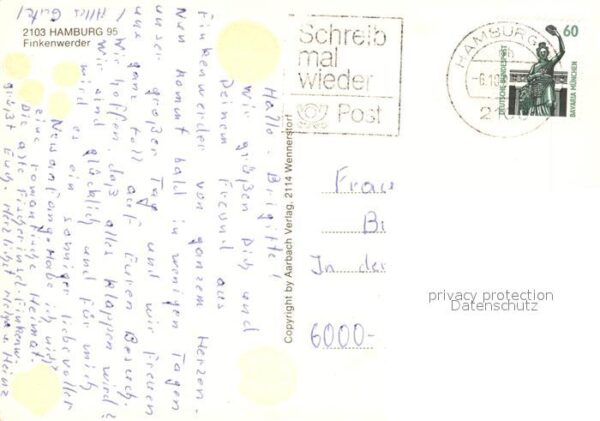 2103 HAMBURG 95
Finkenwerder
Alles Gute!
Hallo Brigitte!
Wir grüßen Dich und
Deinen Freund aus
Finkenwerder von ganzem Herzen.
Nun kommt bald in wenigen Tagen
unser großer Tag und wir freuen
uns ganz toll auf Euren Besuch.
Wir hoffen, daß alles klappen wird
Wir sind glücklich und für mich
wird es ein sonniger liebevoller
Neuanfang. Habe ich nicht
eine romantische Heimat.
Die alte Fischerinsel Finkenw.
grüßt Euch. Herzlichst
u. Heinz
Copyright by Aarbach Verlag, 2114 Wennerstorf
Schreib
mal
wieder
Post
HAMBURG
60
DEUTSCHE BUNDESPOST
BAVARIA MÜNCHEN
Frau
Bi
In der
6000-
privacy protection
Datenschutz